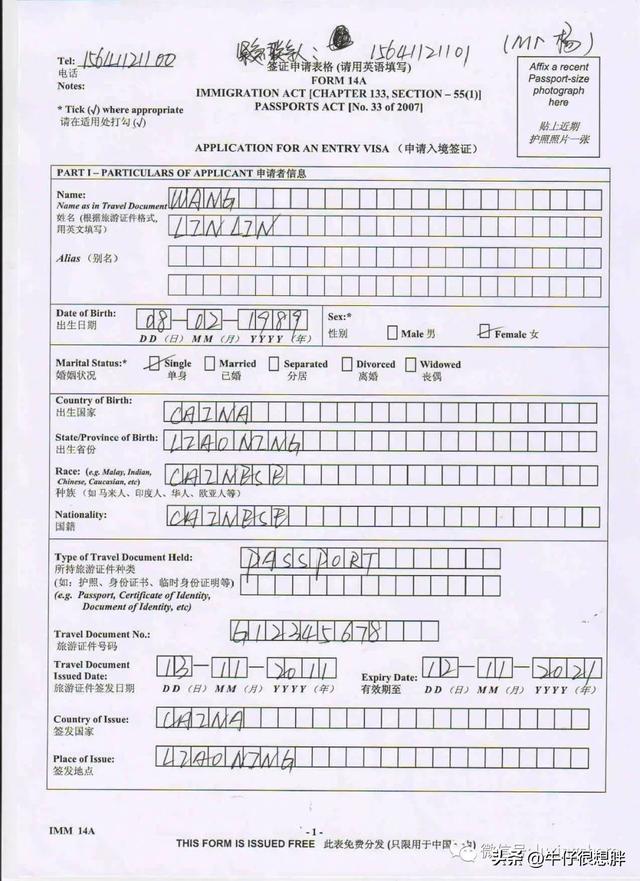 Tel: 15641121100
电话
紧急联系人: 15641121101 (Mr 杨)
签证申请表格 (请用英语填写)
FORM 14A
IMMIGRATION ACT [CHAPTER 133, SECTION – 55(1)]
PASSPORTS ACT [No. 33 of 2007]
Notes:
* Tick (√) where appropriate
请在适用处打勾 (√)
Affix a recent
Passport-size
photograph
here
贴上近期
护照照片一张
APPLICATION FOR AN ENTRY VISA (申请入境签证)
PART I – PARTICULARS OF APPLICANT 申请者信息
Name: WANG
Name as in Travel Document
姓名 (根据旅游证件格式, LINLIN
用英文填写)
Alias (别名)
Date of Birth: 08 – 02 – 1989
出生日期
DD (日) MM (月) YYYY (年)
Sex:*
性别
Male 男
Female 女
Marital Status:* Single Married Separated Divorced Widowed
婚姻状况 单身 已婚 分居 离婚 丧偶
Country of Birth: CHINA
出生国家
State/Province of Birth: LIAONING
出生省份
Race: (e.g. Malay, Indian, CHINESE
Chinese, Caucasian, etc)
种族 (如马来人、印度人、华人、欧亚人等)
Nationality: CHINESE
国籍
Type of Travel Document Held: PASSPORT
所持旅游证件种类
(如: 护照、身份证书、临时身份证明等)
(e.g. Passport, Certificate of Identity,
Document of Identity, etc)
Travel Document No.: G12345678
旅游证件号码
Travel Document 13 – 11 – 2011 Expiry Date: 12 – 11 – 2021
Issued Date: DD (日) MM (月) YYYY (年) 有效期至 DD (日) MM (月) YYYY (年)
旅游证件签发日期
Country of Issue: CHINA
签发国家
Place of Issue: LIAONING
签发地点
IMM 14A
- 1 -
THIS FORM IS ISSUED FREE 此表免费分发 (只限用于中国
微信号:
头条 @牛仔很想胖